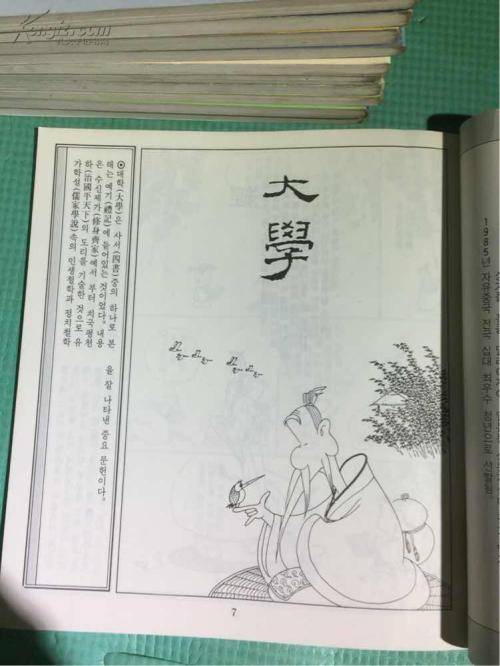 Kongfz.com
大學
⊙대학(大學)은 사서(四書)중의 하나로 본
래는 예기(禮記)에 들어있는 것이었다. 내용
은 수신제가(修身齊家)에서 부터 치국평천
하(治國平天下)의 도리를 기술한 것으로 유
가학설(儒家學說)속의 인생철학과 정치철학
을 잘 나타낸 중요 문헌이다.
7
1985년 자유중국 전국 십대 최우수 청년으로 선발됨